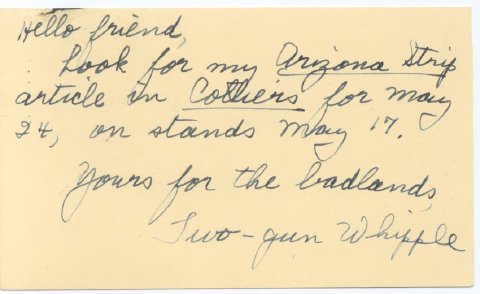 Hello friend,
Look for my Arizona Strip
article in Colliers for May
24, on stands May 17.
Yours for the badlands,
Two-gun Whipple